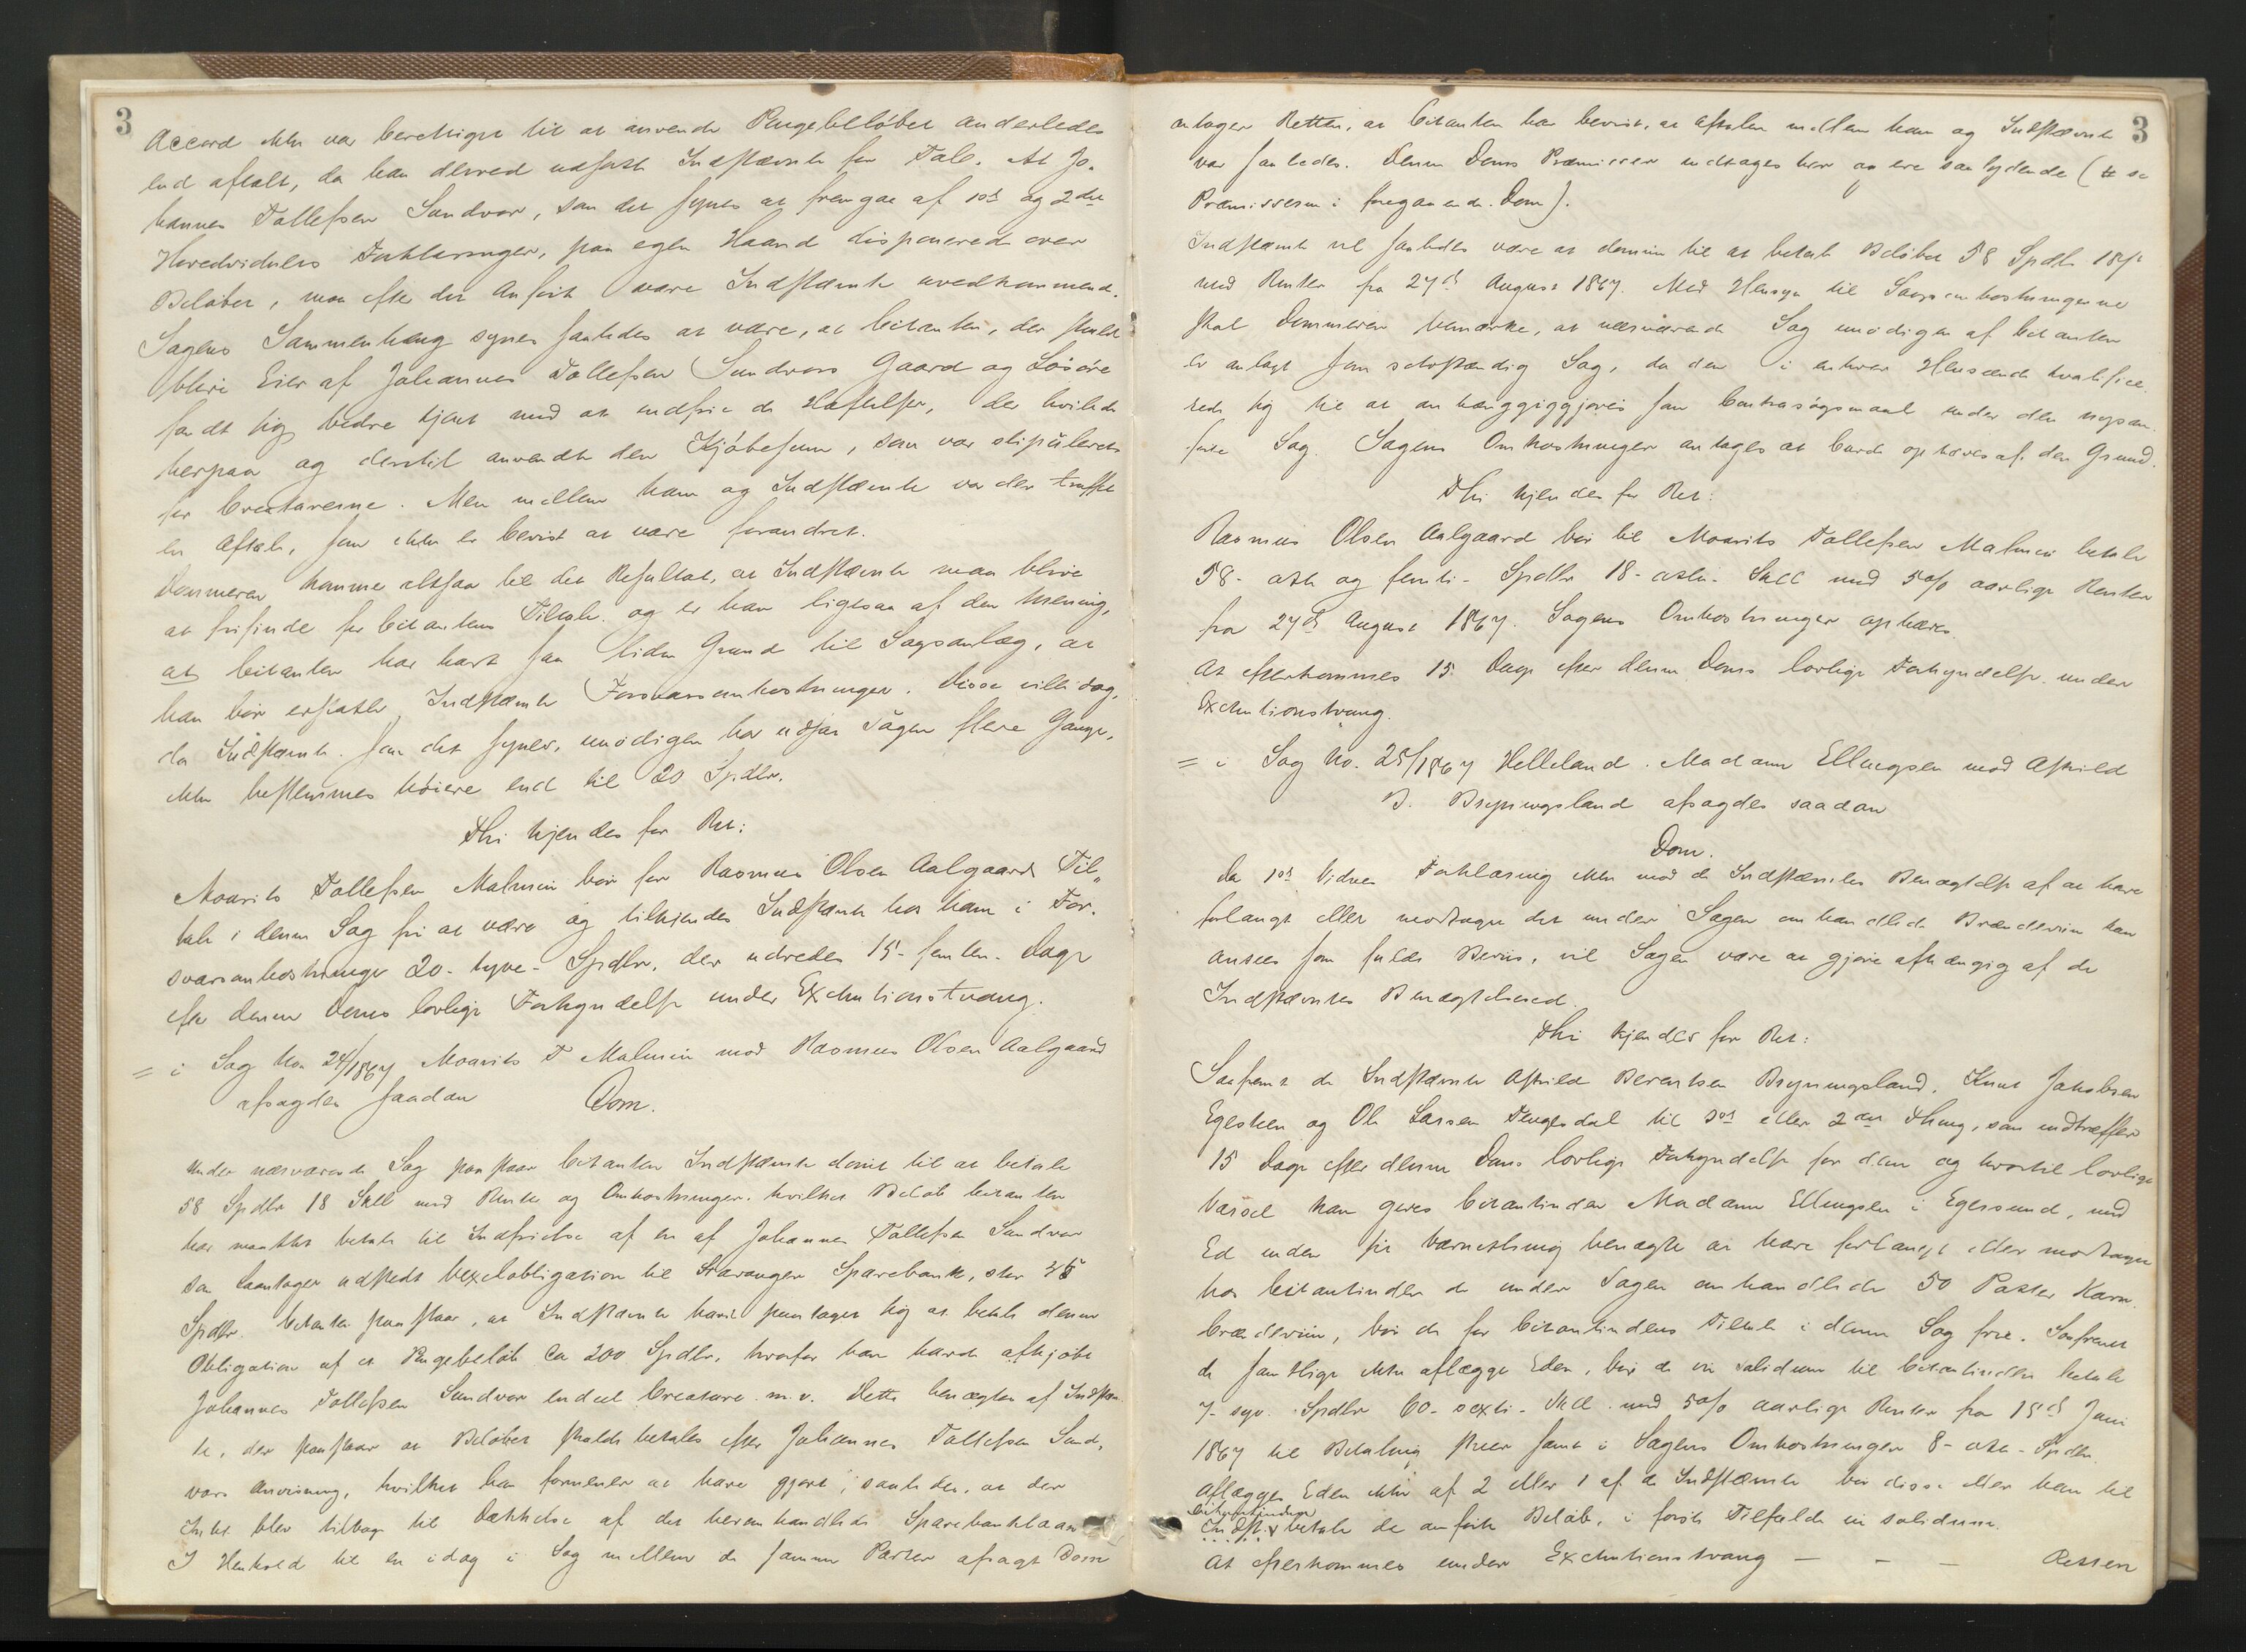 3
Accord ikke var berettiget til at anvende Pengebeløbet anderledes
end aftalt, da han derved udsatte Indstævnte for Tab. At Jo-
hannes Tollefsen Sandvar, som det synes at fremgaa af 1ste og 2det
Hovedvidnes Forklaringer, paa egen Haand disponerede over
Beløbet, maa efter det Anførte være Indstævnte uvedkommende.
Sagens Sammenhæng synes saaledes at være, at Citanten, der skulde
blive Eier af Johannes Tollefsen Sandvars Gaard og Løsøre
fandt sig bedre tjent med at indfrie de Heftelser, der hvilede
herpaa og dertil anvendte den Kjøbesum, som var stipuleret
for Creaturerne. Men mellem ham og Indstævnte var der truffet
en Aftale, som ikke er bevist at være forandret.
Dommeren kommer altsaa til det Resultat, at Indstævnte maa blive
at frifinde for Citantens Tiltale og er han ligesaa af den Mening,
at Citanten har havt saa liden Grund til Sagsanlæg, at
han bør erstatte Indstævnte Forsvarsomkostninger. Disse vil idag,
da Indstævnte, som det synes, unødigen har udsat Sagen flere Gange,
ikke bestemmes høiere end til 20 Spdlr.
Thi kjendes for Ret:
Maarits Tollefsen Malmin bør for Rasmus Olsen Aalgaards Til-
tale i denne Sag fri at være og tilkjendes Indstævnte hos ham i For-
svarsomkostninger 20- tyve- Spdlr, der udredes 15- femten- Dage
efter denne Doms lovlige Forkyndelse under Exekutionstvang.
= i Sag No 24/1867 Maarits T Malmin mod Rasmus Olsen Aalgaard
afsagdes saadan Dom.
Under nærværende Sag paastaar Citanten Indstævnte dømt til at betale
58 Spdlr 18 Skll med Renter og Omkostninger, hvilket Beløb Citanten
har maattet betale til Indfrielse af en af Johannes Tollefsen Sandvar
som Laantager udstedt Vexelobligation til Stavanger Sparebank, stor
Spdlr. Citanten paastaar, at Indstævnte havde paataget sig at betale denne
Obligation af et Pengebeløb Ca 200 Spdlr, hvorfor han havde afkjøbt
Johannes Tollefsen Sandvar endeel Creature m.v. Dette benægtes af Indstævn-
te, der paastaar at Beløbet skulde betales efter Johannes Tollefsen Sand-
vars Anvisning, hvilket han formener at have gjort, saaledes, at der
Intet blev tilbage til Dækkelse af det heromhandlede Sparebanklaan
I Henhold til en idag i Sag mellem de samme Parter afsagt Dom
3
antager Retten, at Citanten har bevist, at Aftalen mellem ham og Indstævnte
var saaledes. Denne Doms Præmisser indtages her og ere saalydende (se
Præmisserne i foregaaende Dom).
Indstævnte vil saaledes være at dømme til at betale Beløbet 58 Spdlr 18 s
med Renter fra 27de August 1867. Med Hensyn til Sagsomkostningerne
skal Dommeren bemærke, at nærværende Sag unødigen af Citanten
er anlagt som selvstændig Sag, da den i enhver Henseende kvalifice-
rede sig til at anhængiggjøres som Contrasøgsmaal under den nysan-
førte Sag. Sagens Omkostninger antages at burde ophæves af den Grund.
Thi kjendes for Ret:
Rasmus Olsen Aalgaard bør til Maarits Tollefsen Malmin betale
58- otte og femti- Spdlr 18- atten- Skll med 5 o/o aarlige Renter
fra 27de August 1867. Sagens Omkostninger ophæves.
At efterkommes 15 Dage efter denne Doms lovlige Forkyndelse under
Exekutionstvang.
= i Sag No. 25/1867 Helleland. Madame Ellingsen mod Askild
B. Bryningsland afsagdes saadan
Dom.
Da 1ste Vidnes Forklaring ikke mod de Indstævntes Benægtelse af at have
forlangt eller modtaget det under Sagen omhandlede Brændeviin kan
ansees som fuldt Beviis, vil Sagen være at gjøre afhængig af de
Indstævntes Benægtelsesed.
Thi kjendes for Ret:
Saafremt de Indstævnte Askild Berentsen Bryningsland, Knut Jakobsen
Egesteen og Ole Larsen Tengesdal til 1ste eller 2det Thing, som indtræffer
15 Dage efter denne Doms lovlige Forkyndelse for dem og hvortil lovligt
Varsel kan gives Citantinden Madame Ellingsen i Egersund, med
Ed inden sit Værnething benægte at have forlangt eller modtaget
hos Citantinden de under Sagen omhandlede 50 Potter Korn-
brændeviin, bør de for Citantindens Tiltale i denne Sag frie. Saafremt
de samtlige ikke aflægge Eden, bør de in solidum til Citantinden betale
7- syv- Spdlr 60- sexti- Skll med 5 o/o aarlige Renter fra 15de Juni
1867 til Betaling skeer samt i Sagens Omkostninger 8- otte- Spdlr.
Aflægges Eden ikke af 2 eller 1 af de Indstævnte bør disse eller han til
Citantinden
Indst. betale de anførte Beløb, i første Tilfælde in solidum.
At efterkommes under Exekutionstvang — — — Retten